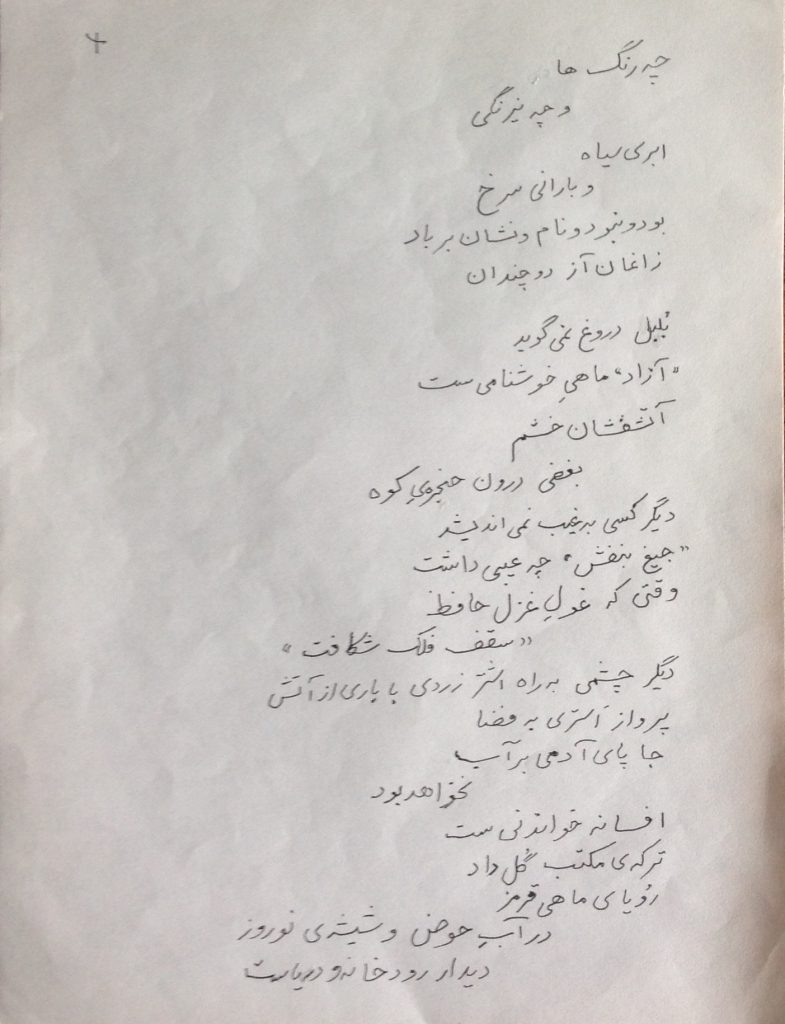 چه رنگ ها
و چه نیرنگی
ابری سیاه
و بارانی سرخ
بود و نبود و نام و نشان بر باد
زاغان آز دو چندان
بُلبل دروغ نمی گوید
"آزاد" ماهیِ خوشنامی ست
آتشفشان خشم
بغضی درون حنجره‌یِ کوه
دیگر کسی به غیب نمی اندیشد
"جیغ بنفش" چه عیبی داشت
وقتی که غولِ غزل حافظ
«سقف فلک شکافت»
دیگر چشمی به راه اشتر زردی با باری از آتش
پرواز اَستری به فضا
جا پای آدمی بر آب
نخواهد بود
افسانه خواندنی ست
ترکه‌ی مکتب گُل داد
رُویای ماهی قرمز
در آبِ حوض و شیشه‌ی نوروز
دیدار رودخانه و دریاست